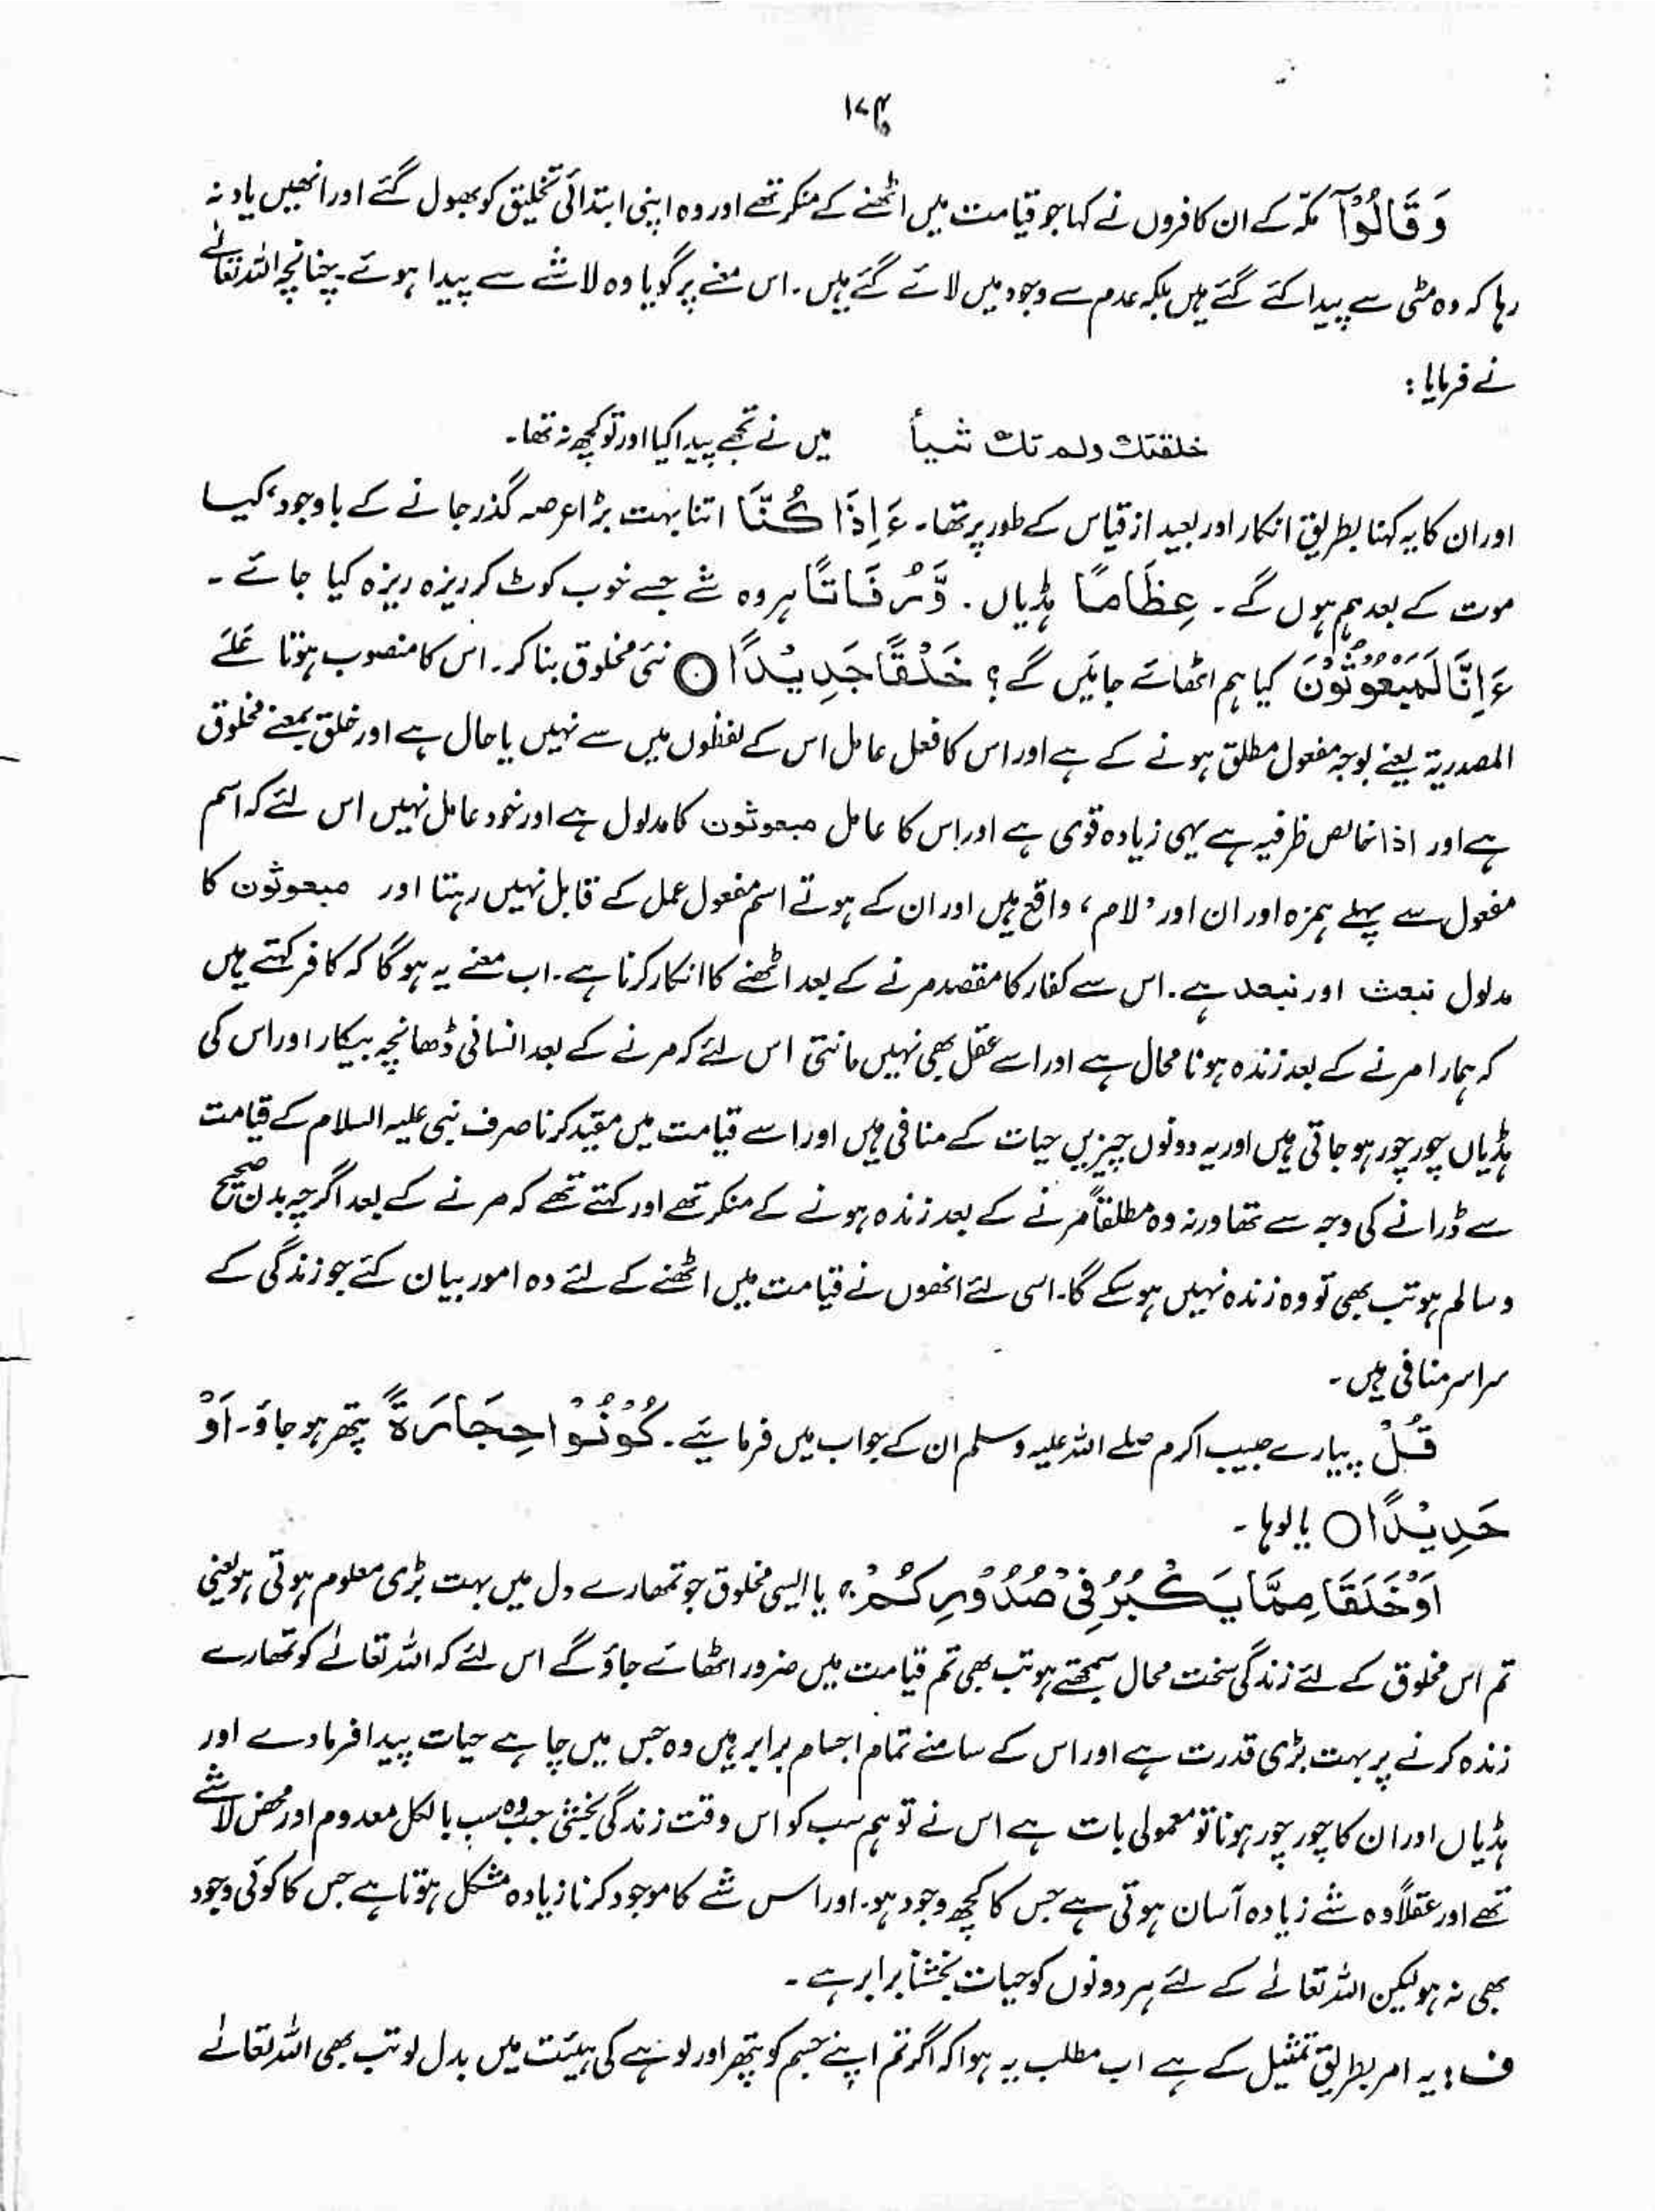 ۱۷۴
وَقَالُوْٓا مکہ کے ان کافروں نے کہا جو قیامت میں اٹھنے کے منکر تھے اور وہ اپنی ابتدائی تخلیق کو بھول گئے اور انھیں یاد نہ
رہا کہ وہ مٹی سے پیدا کئے گئے ہیں بلکہ عدم سے وجود میں لائے گئے ہیں۔ اس معنے پر گویا وہ لاشے سے پیدا ہوئے۔ چنانچہ اللہ تعالٰے
نے فرمایا :
خلقتك ولم تك شيأ میں نے تجھے پیدا کیا اور تو کچھ نہ تھا۔
اور ان کا یہ کہنا بطریق انکار اور بعید از قیاس کے طور پر تھا۔ ءَاِذَا كُنَّا اتنا بہت بڑا عرصہ گذر جانے کے باوجود، کیا
موت کے بعد ہم ہوں گے۔ عِظَامًا ہڈیاں۔ وَّرُفَاتًا ہر وہ شے جسے خوب کوٹ کر ریزہ ریزہ کیا جائے۔
ءَاِنَّا لَمَبْعُوْثُوْنَ کیا ہم اٹھائے جائیں گے؟ خَلْقًا جَدِيْدًا ○ نئی مخلوق بنا کر۔ اس کا منصوب ہونا علے
المصدریۃ یعنے بوجہ مفعول مطلق ہونے کے ہے اور اس کا فعل عامل اس کے لفظوں میں سے نہیں یا حال ہے اور خلق بمعنے مخلوق
ہے اور اذا خالص ظرفیہ ہے یہی زیادہ قوی ہے اور اس کا عامل مبعوثون کا مدلول ہے اور خود عامل نہیں اس لئے کہ اسم
مفعول سے پہلے ہمزہ اور ان اور ’لام‘ واقع ہیں اور ان کے ہوتے اسم مفعول عمل کے قابل نہیں رہتا اور مبعوثون کا
مدلول نبعث اور نبعد ہے۔ اس سے کفار کا مقصد مرنے کے بعد اٹھنے کا انکار کرنا ہے۔ اب معنے یہ ہو گا کہ کافر کہتے ہیں
کہ ہمارا مرنے کے بعد زندہ ہونا محال ہے اور اسے عقل بھی نہیں مانتی اس لئے کہ مرنے کے بعد انسانی ڈھانچہ بیکار اور اس کی
ہڈیاں چور چور ہو جاتی ہیں اور یہ دونوں چیزیں حیات کے منافی ہیں اور اسے قیامت میں مقید کرنا صرف نبی علیہ السلام کے قیامت
سے ڈرانے کی وجہ سے تھا ورنہ وہ مطلقاً مرنے کے بعد زندہ ہونے کے منکر تھے اور کہتے تھے کہ مرنے کے بعد اگرچہ بدن صحیح
و سالم ہو تب بھی تو وہ زندہ نہیں ہو سکے گا۔ اسی لئے انھوں نے قیامت میں اٹھنے کے لئے وہ امور بیان کئے جو زندگی کے
سراسر منافی ہیں۔
قُلْ پیارے حبیب اکرم صلے اللہ علیہ وسلم ان کے جواب میں فرمائیے۔ كُوْنُوْا حِجَارَةً پتھر ہو جاؤ۔ اَوْ
حَدِيْدًا ○ یا لوہا۔
اَوْ خَلْقًا مِمَّا يَكْبُرُ فِيْ صُدُوْرِكُمْ ج یا ایسی مخلوق جو تمھارے دل میں بہت بڑی معلوم ہوتی ہو یعنی
تم اس مخلوق کے لئے زندگی سخت محال سمجھتے ہو تب بھی تم قیامت میں ضرور اٹھائے جاؤ گے اس لئے کہ اللہ تعالٰے کو تمھارے
زندہ کرنے پر بہت بڑی قدرت ہے اور اس کے سامنے تمام اجسام برابر ہیں وہ جس میں چاہے حیات پیدا فرما دے اور
ہڈیاں اور ان کا چور چور ہونا تو معمولی بات ہے اس نے تو ہم سب کو اس وقت زندگی بخشی جب وہ سب بالکل معدوم اور محض لاشے
تھے اور عقلاً وہ شے زیادہ آسان ہوتی ہے جس کا کچھ وجود ہو۔ اور اس شے کا موجود کرنا زیادہ مشکل ہوتا ہے جس کا کوئی وجود
بھی نہ ہو لیکن اللہ تعالٰے کے لئے ہر دونوں کو حیات بخشنا برابر ہے۔
ف : یہ امر بطریق تمثیل کے ہے اب مطلب یہ ہوا کہ اگر تم اپنے جسم کو پتھر اور لوہے کی ہیئت میں بدل لو تب بھی اللہ تعالٰے